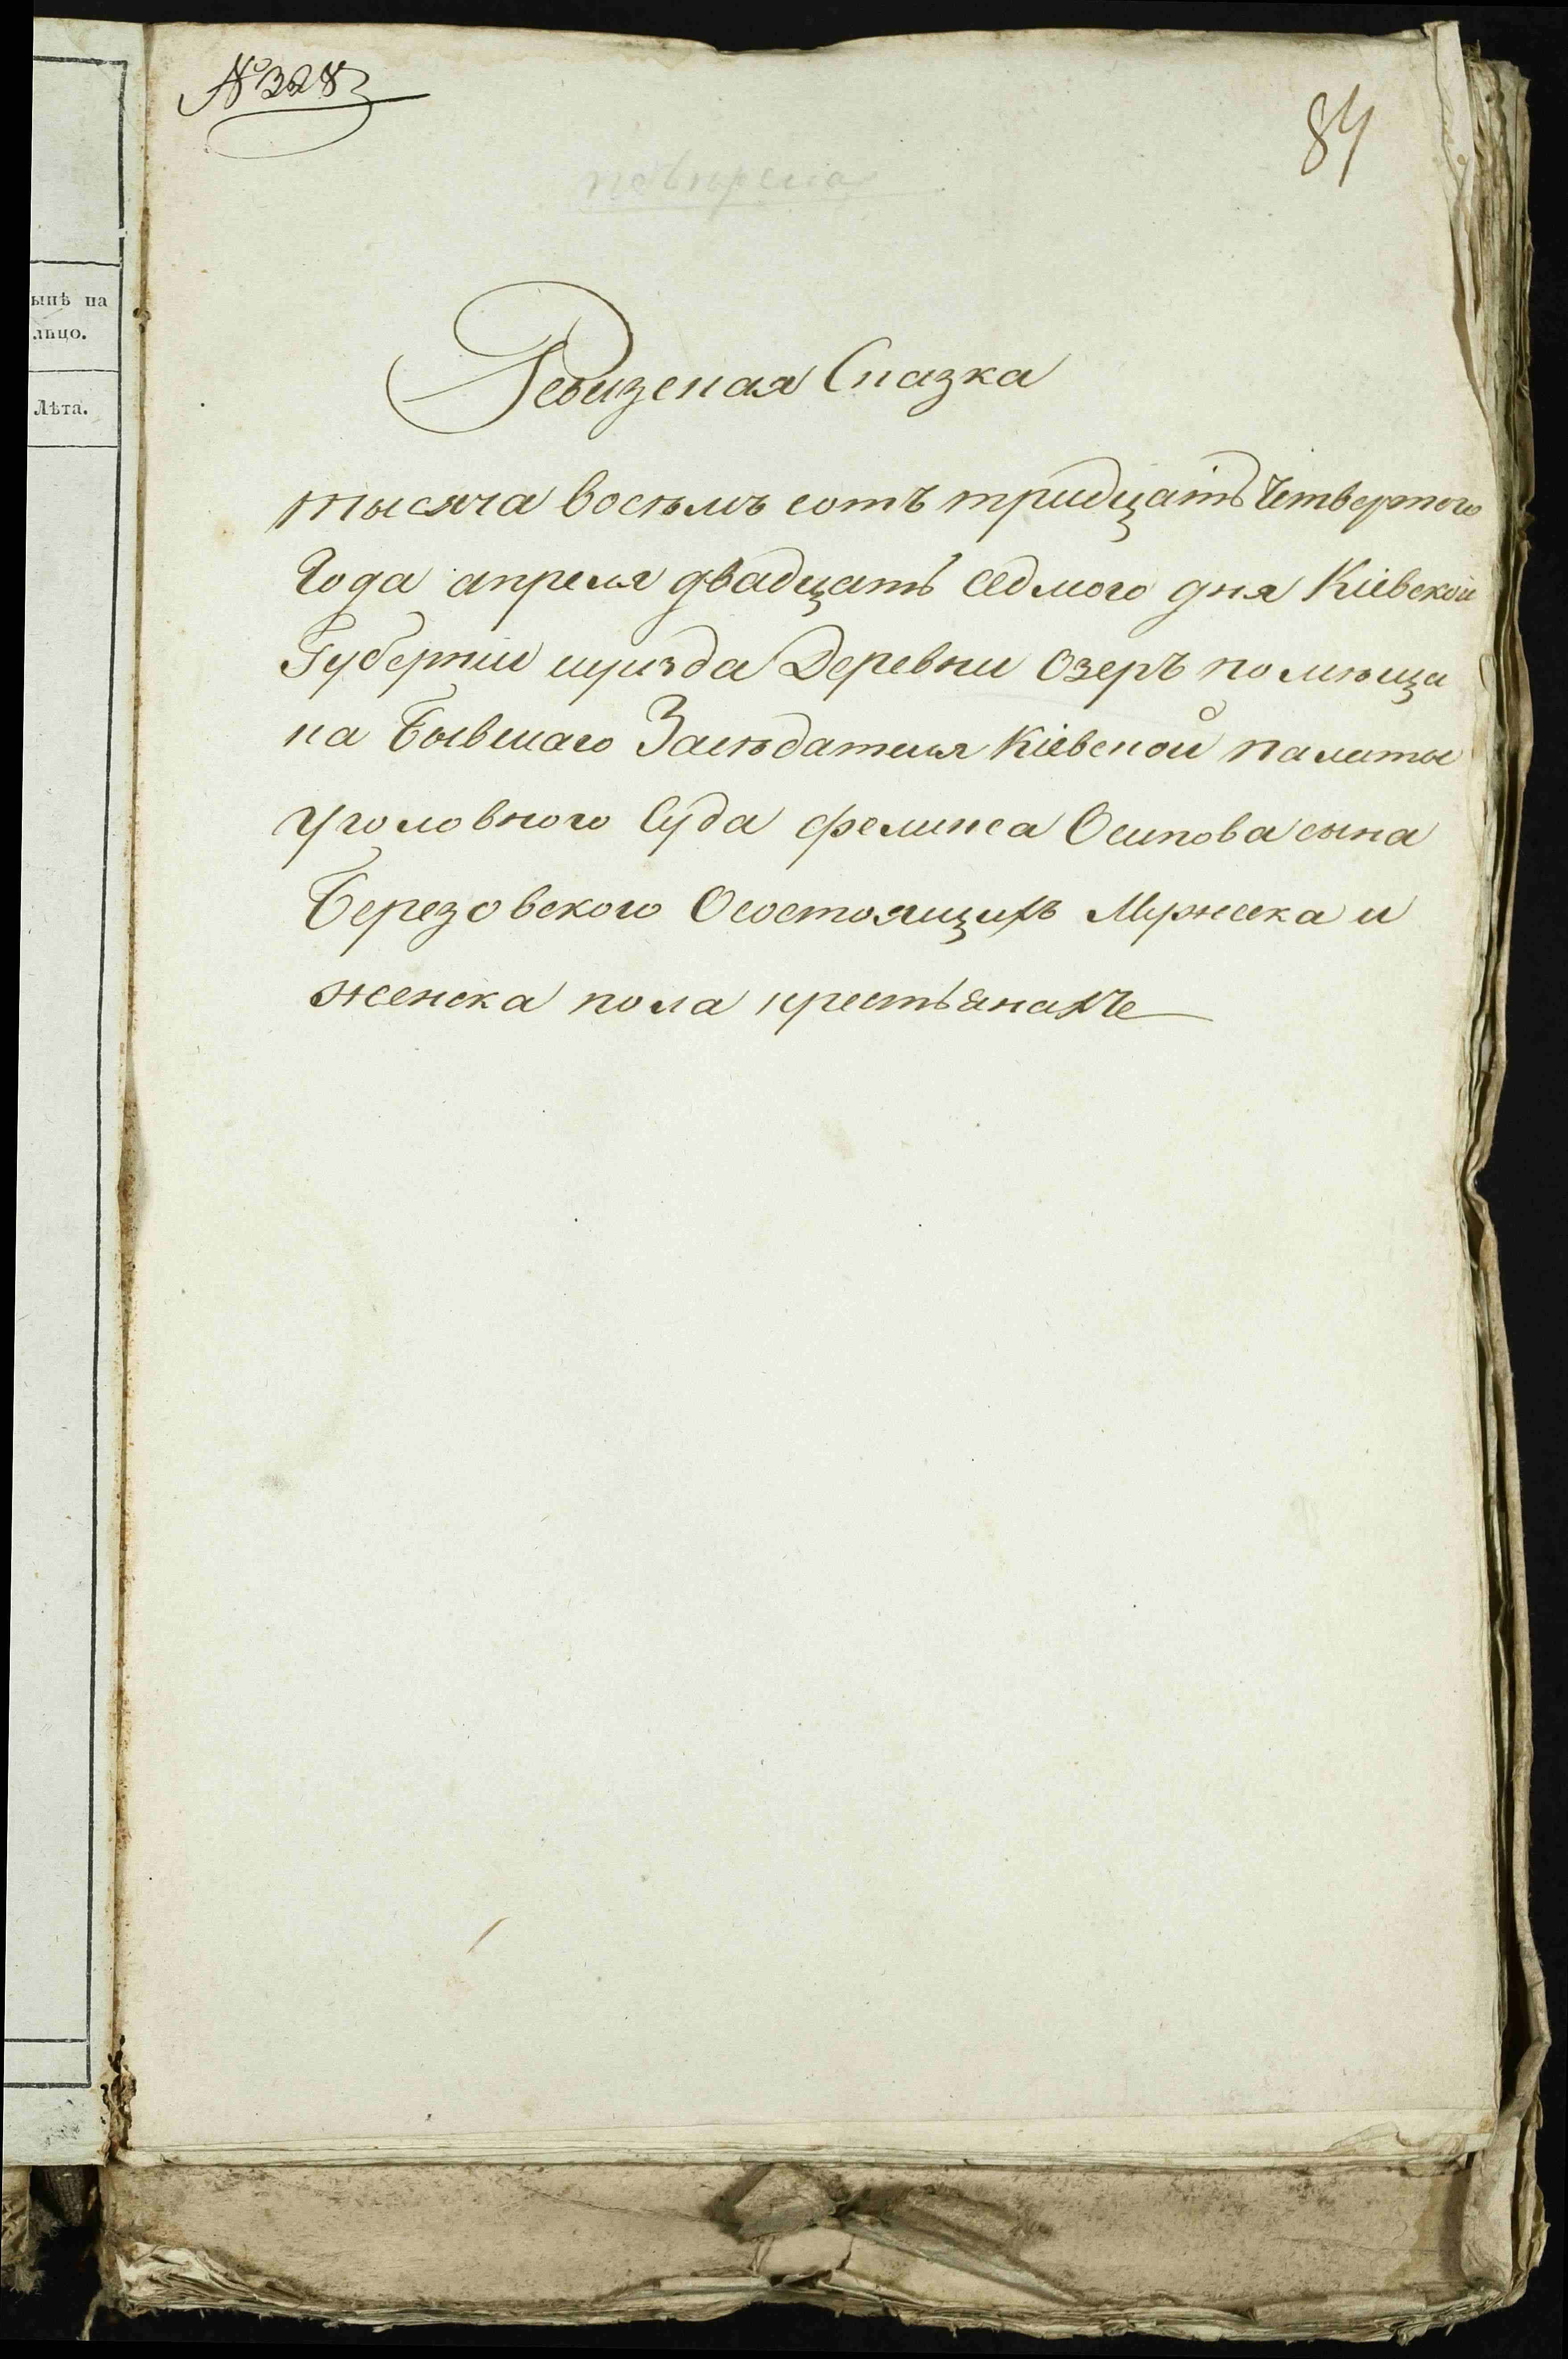 № 328
84
повѣрена
ынѣ на
лицо.
Лѣта.
Ревизсная Сказка
тысяча восѣмъ сотъ тридцать Четвертого
Года апреля двадцать седмого дня Кіевской
Губерніи иуизда Деревни Озеръ помѣщи
ка Бывшаго Засѣдателя Кіевской палаты
Уголовного Суда феликса Осипова сына
Березовского Осостоящихъ Мужеска и
женска пола крестьянахъ